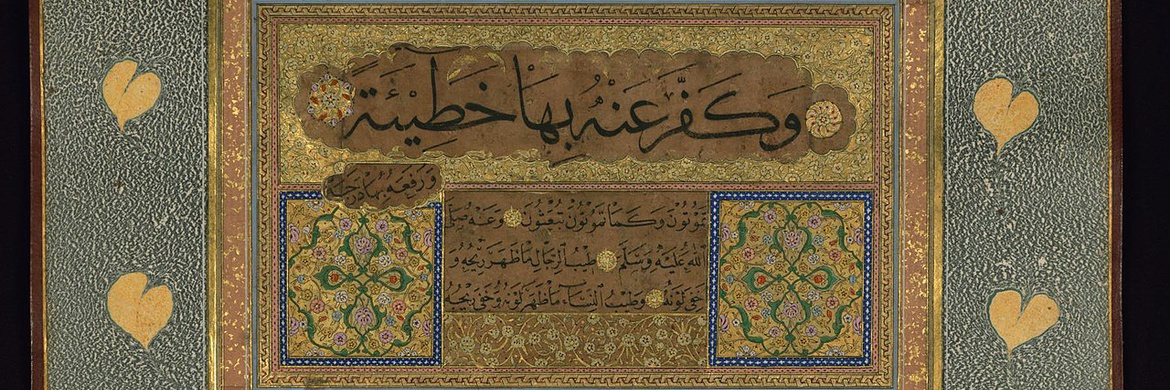 وَكَفَّرَ عَنْهُ بِهَا خَطِيئَةً
وَرَفَعَهُ بِهَا دَرَجَةً
تَمُوتُونَ وَكَمَا تَمُوتُونَ تُبْعَثُونَ وَعَنْهُ صَلَّى
اللهُ عَلَيْهِ وَسَلَّمَ طِيبُ الرِّجَالِ مَا ظَهَرَ رِيحُهُ وَ
خَفِيَ لَوْنُهُ وَطِيبُ النِّسَاءِ مَا ظَهَرَ لَوْنُهُ وَخَفِيَ رِيحُهُ